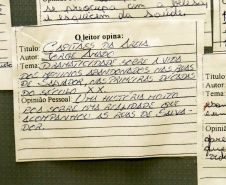 se preocupa com a beleza
e esquecem da saúde.
O leitor opina:
Título: CAPITÃES DA AREIA
Autor: JORGE AMADO
Tema: DRAMATICIDADE SOBRE A VIDA
DOS MENINOS ABANDONADOS NAS RUAS
DE SALVADOR, NAS PRIMEIRAS DÉCADAS
DO SÉCULO XX.
Opinião Pessoal: UMA HISTÓRIA MUITO
RICA SOBRE UMA REALIDADE QUE
ACOMPANHOU AS RUAS DE SALVA-
DOR.
Opiniã